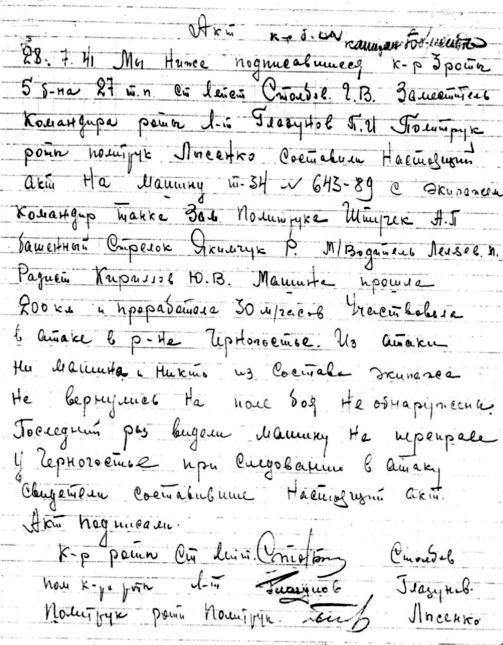 Акт
к-р б-на капитан
28.7.41 Мы Ниже подписавшиеся к-р роты
5 б-на 27 т.п. ст лейт Столбов. Г.В. Заместитель
Командира роты л-т Глазунов П.И Политрук
роты политрук Лысенко составили Настоящий
акт На машину Т-34 № 643-89 с экипажем
командир танка Зам. Политрука Штучек А.П
башенный Стрелок Якимчук Р. М/Водитель
Радист Кириллов Ю.В. Машина прошла
200 км и проработала 30 м/часов Участвовала
в атаке в р-не Черногостье. Из атаки
ни машина и никто из состава экипажа
Не вернулись На поле боя Не обнаружены
Последний раз видели машину На переправе
У Черногостье при следовании в атаку
Свидетели составившие Настоящий акт.
Акт подписали.
к-р роты Ст лейт. Столбов
пом к-ра роты л-т Глазунов Глазунов.
Политрук роты Политрук. Лысенко